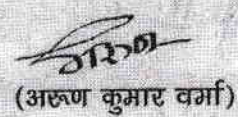 अरुण
(अरूण कुमार वर्मा)